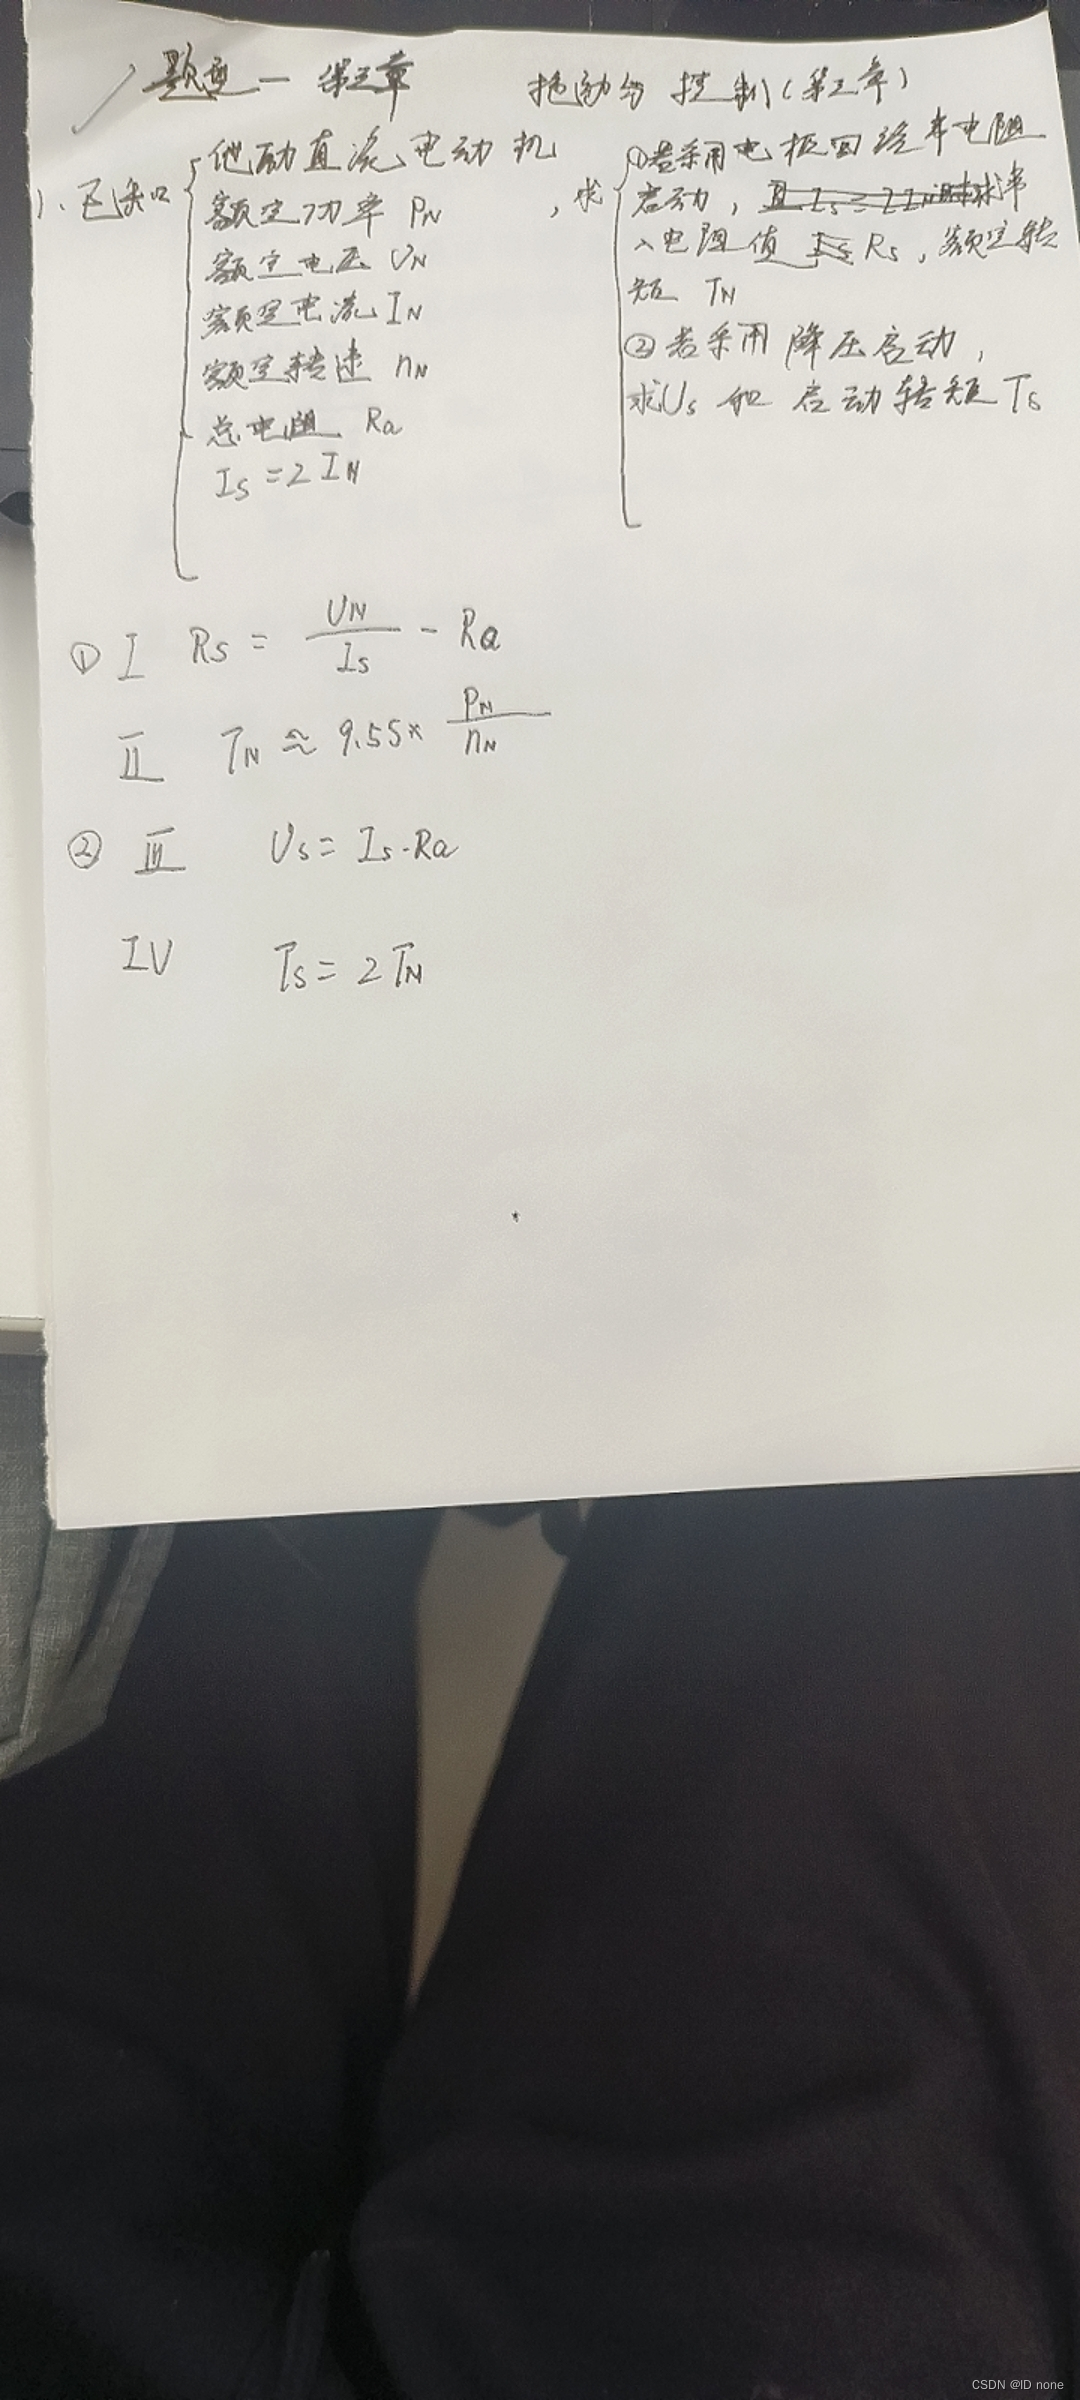 题型一 第三章
拖动与控制(第三章)
1、已知
他励直流电动机
额定功率 PN
额定电压 UN
额定电流 IN
额定转速 nN
总电阻 Ra
Is=2IN
,求
①若采用电枢回路串电阻
启动,求串
入电阻值 Rs,额定转
矩 TN
②若采用降压启动,
求Us和启动转矩Ts
① I Rs = UN/Is - Ra
II TN ≈ 9.55× PN/nN
② III Us= Is·Ra
IV Ts= 2TN
CSDN @ID none